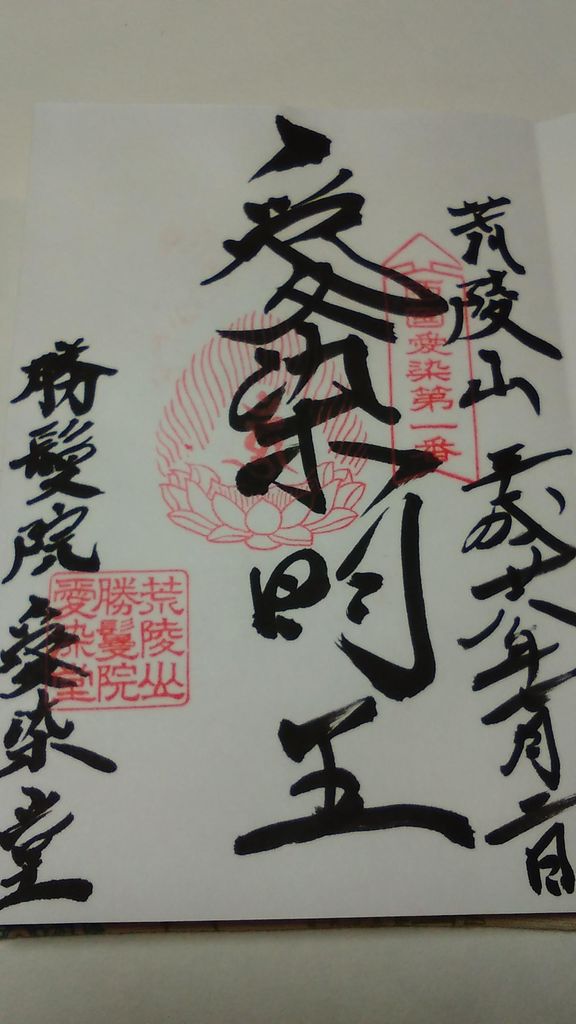 荒陵山 平成廿八年月二日
西國愛染第一番
愛染明王
勝鬘院愛染堂
荒陵山
勝鬘院
愛染堂